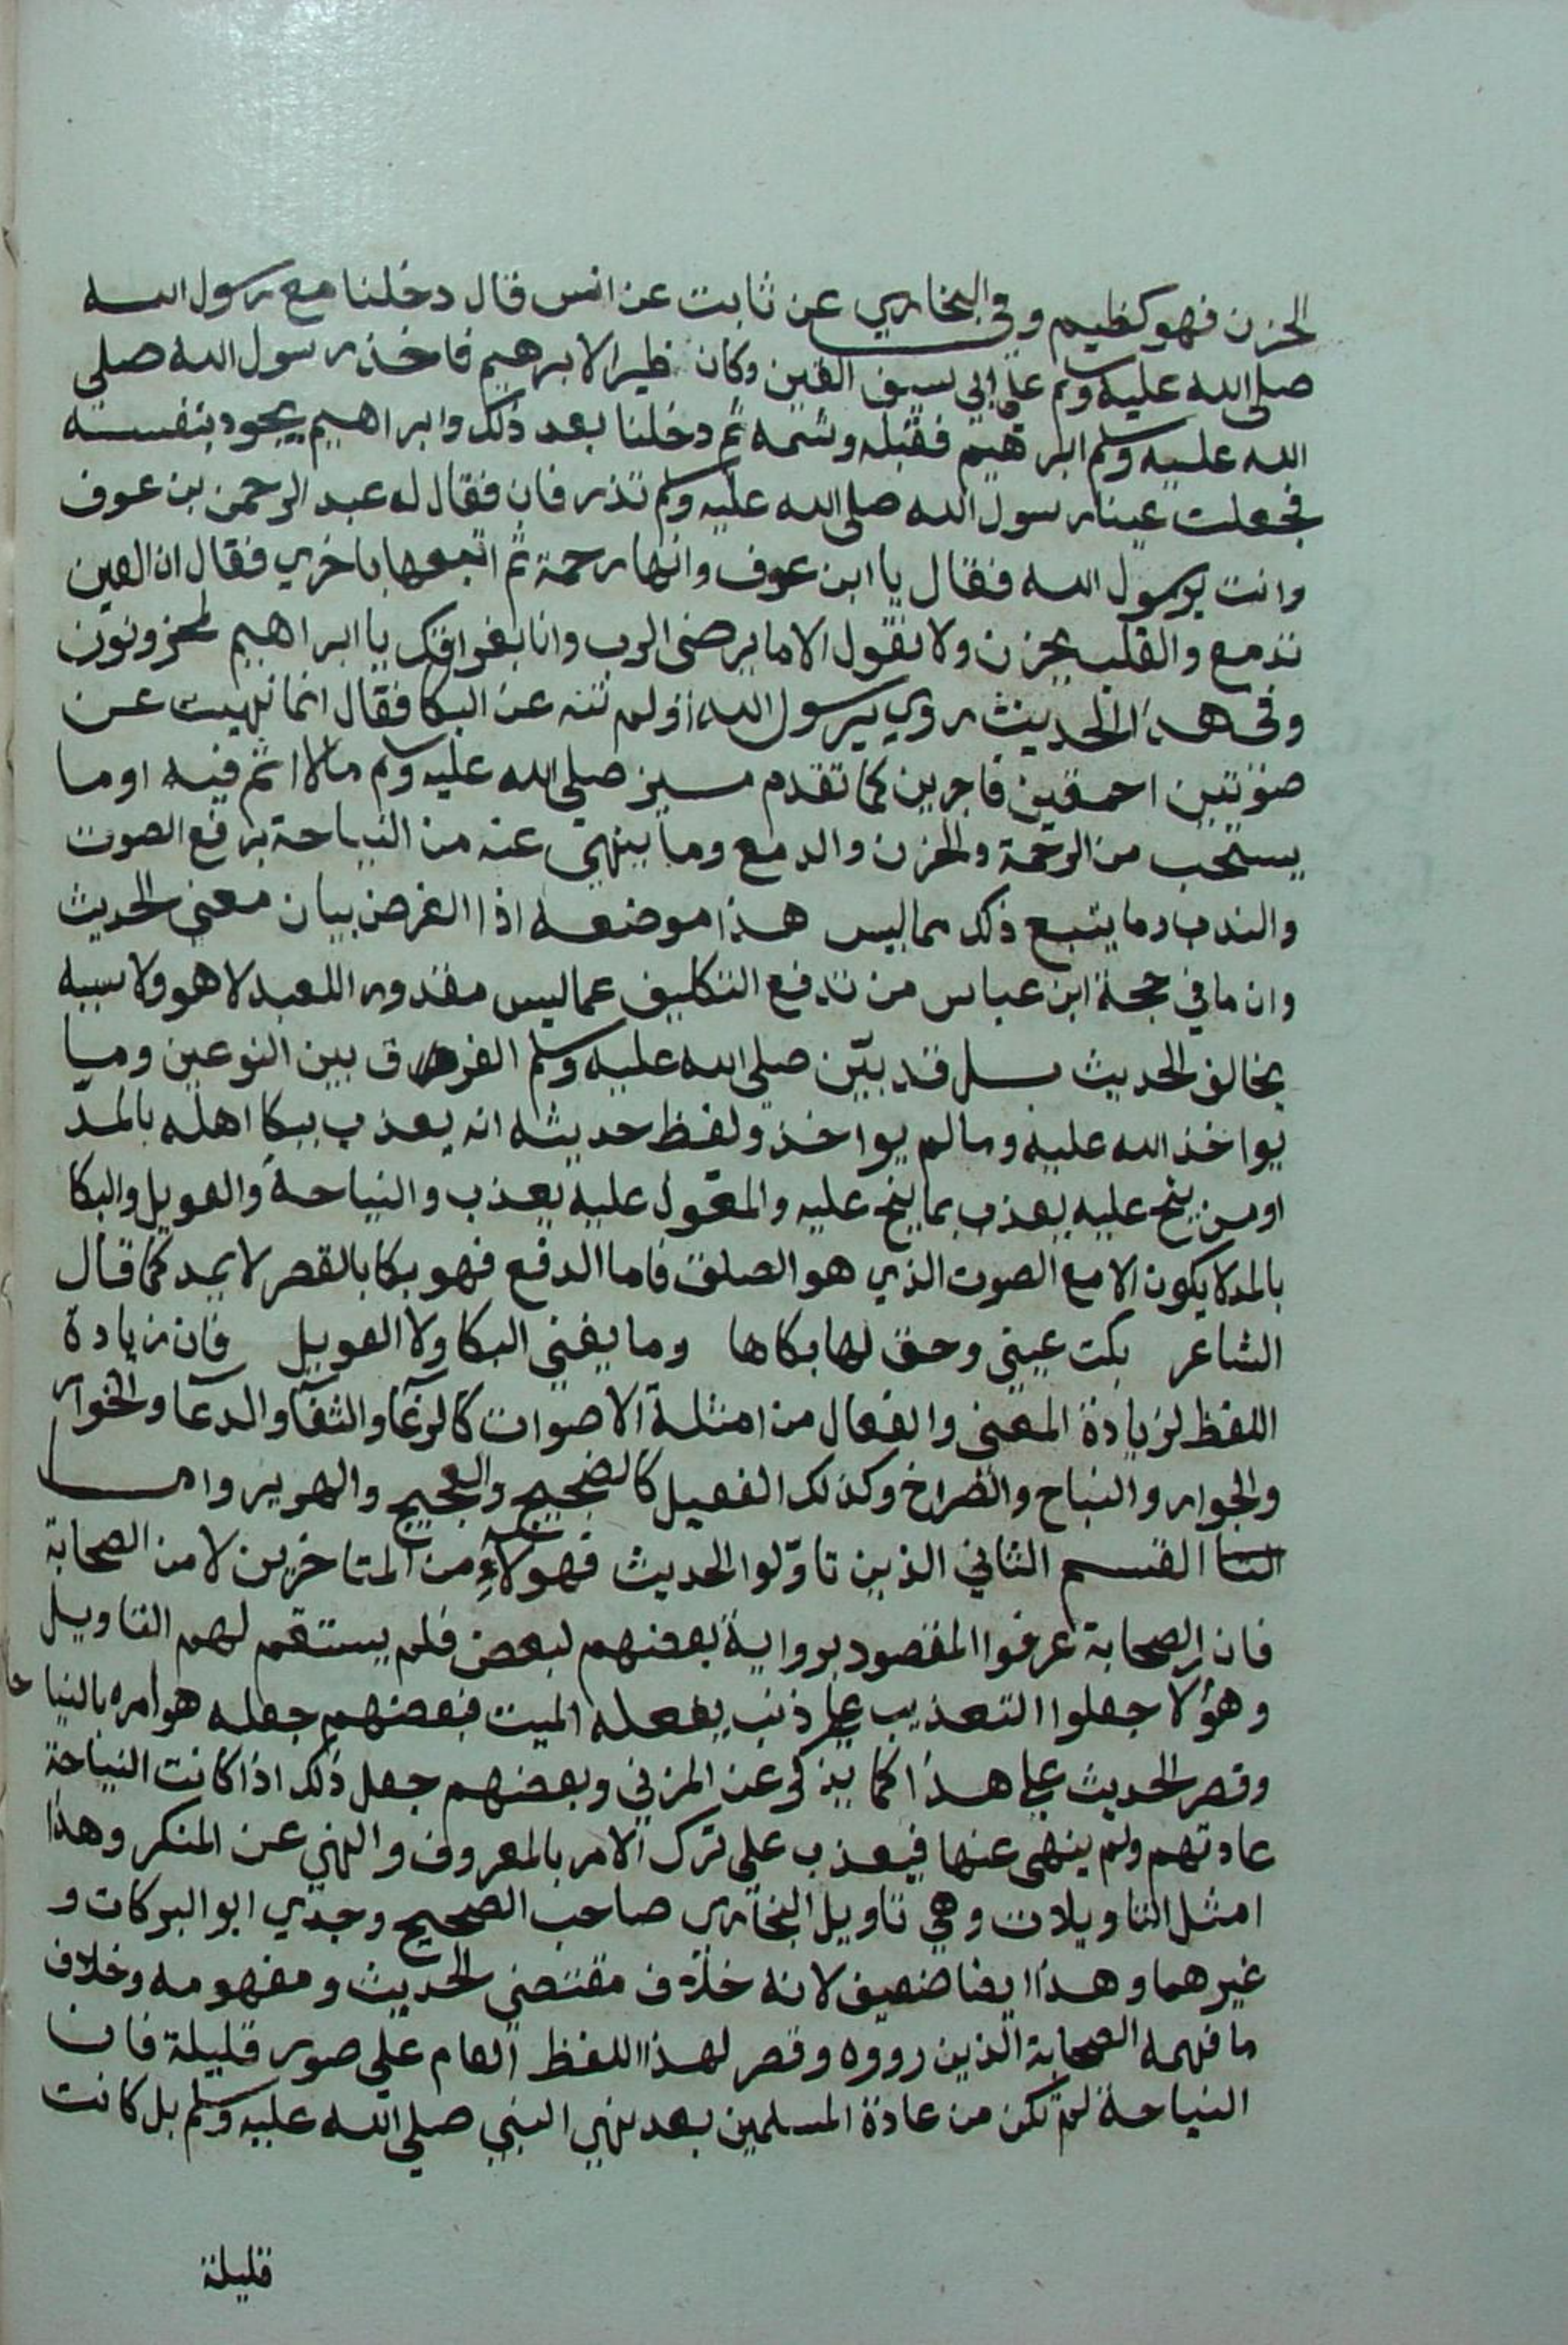 الحزن فهو كظيم وفي البخاري عن ثابت عن انس قال دخلنا مع رسول الله
صلى الله عليه وسلم على ابي سيف القين وكان ظيرا لابرهيم فاخذ رسول الله صلى
الله عليه وسلم ابرهيم فقبله وشمه ثم دخلنا بعد ذلك وابراهيم يجود بنفسه
فجعلت عينا رسول الله صلى الله عليه وسلم تذرفان فقال له عبد الرحمن بن عوف
وانت يرسول الله فقال يا ابن عوف وانها رحمة ثم اتبعها باخري فقال ان العين
تدمع والقلب يحزن ولا نقول الا ما يرضى الرب وانا بفراقك يا ابراهيم لمحزونون
وفي هذا الحديث روي يرسول الله اولم تنه عن البكا فقال انما نهيت عن
صوتين احمقين فاجرين كما تقدم ميز صلى الله عليه وسلم ما لا اثم فيه او ما
يستحب من الرحمة والحزن والدمع وما ينهى عنه من النياحة برفع الصوت
والندب وما يتبع ذلك مما ليس هذا موضعه اذا الغرض بيان معنى الحديث
وان ما في حجة ابن عباس من تدفع التكليف عما ليس مقدورا للعبد لا هو ولا سببه
يخالف الحديث بل قد بين صلى الله عليه وسلم الفرق بين النوعين وميا
يواخذ الله عليه وما لم يواخذ ولفظ حديثه انه يعذب ببكا اهله بالمد
او من ينح عليه يعذب بما ينح عليه والمعول عليه يعذب والنياحة والعويل والبكا
بالمد لا يكون الا مع الصوت الذي هو الصلق فاما الدفع فهو بكا بالقصر لا يمد كما قال
الشاعر بكت عيني وحق لها بكاها وما يغني البكا ولا العويل فان زيادة
اللفظ لزيادة المعنى والفعال من امثلة الاصوات كالرغا والثغا والدعا والخوار
والجوار والنباح والصراخ وكذلك الفعيل كالضجيج والعجيج والهوير واما
القسم الثاني الذين تاولوا الحديث فهولاء من المتاخرين لا من الصحابة
فان الصحابة عرفوا المقصود برواية بعضهم لبعض فلم يستقم لهم التاويل
وهؤلا جعلوا التعذيب على ذنب يفعله الميت فبعضهم جعله هو امره بالنياحا
وقصر الحديث على هذا كما يذكر عن المزني وبعضهم جعل ذلك اذا كانت النياحة
عادتهم ولم ينهى عنها فيعذب على ترك الامر بالمعروف والنهي عن المنكر وهذا
امثل التاويلات وهي تاويل البخاري صاحب الصحيح وجدي ابو البركات و
غيرهما وهذا ايضا ضعيف لانه خلاف مقتضى الحديث ومفهومه وخلاف
ما فهمه الصحابة الذين رووه وقصر لهذا اللفظ العام على صور قليلة فان
النياحة لم تكن من عادة المسلمين بعد نهي النبي صلى الله عليه وسلم بل كانت
قليلة